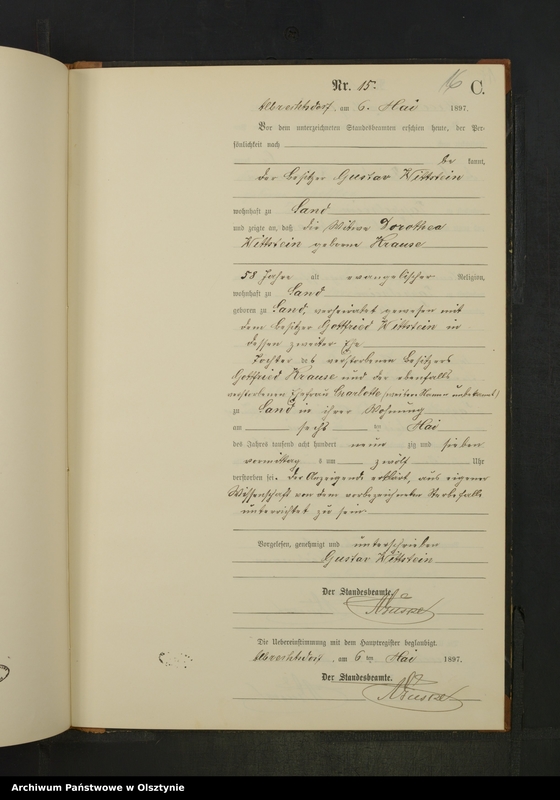 16
Nr. 15. C.
Albrechtsdorf, am 6. Mai 1897.
Vor dem unterzeichneten Standesbeamten erschien heute, der Per-
sönlichkeit nach
be kannt,
der Besitzer Gustav Wittstein
wohnhaft zu Sand
und zeigte an, daß die Witwe Dorothea
Wittstein geborne Krause
58 Jahre alt evangelischer Religion,
wohnhaft zu Sand
geboren zu Sand, verheiratet gewesen mit
dem Besitzer Gottfried Wittstein in
dessen zweiter Ehe
Tochter des verstorbenen Besitzers
Gottfried Krause und der ebenfalls
verstorbenen Ehefrau Charlotte (weiterer Name unbekannt)
zu Sand in ihrer Wohnung
am sechs ten Mai
des Jahres tausend acht hundert neun zig und sieben
vormittag s um zwölf Uhr
verstorben sei. Der Anzeigende erklärt, aus eigener
Wissenschaft von dem vorbezeichneten Sterbefalle
unterrichtet zu sein
Vorgelesen, genehmigt und unterschrieben
Gustav Wittstein
Der Standesbeamte.
Die Uebereinstimmung mit dem Hauptregister beglaubigt.
Albrechtsdorf, am 6 ten Mai 1897.
Der Standesbeamte.
Archiwum Państwowe w Olsztynie